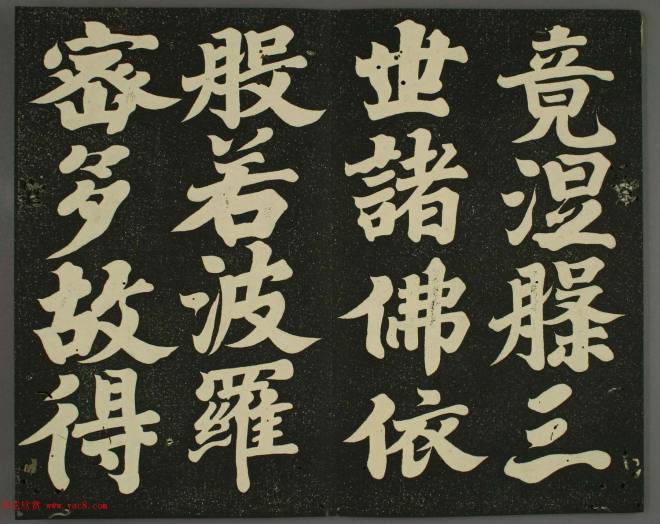 竟涅槃三
世諸佛依
般若波羅
密多故得
欣赏 www.yac8.com